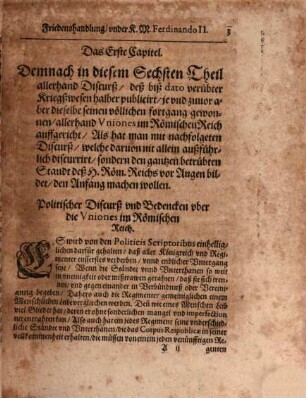 Friedenshandlung/ vnder K. M. Ferdinando II. 3
Das Erste Capitel.
Demnach in diesem Sechsten Theil
allerhand Discurß/ deß biß dato verübter
Kriegßwesen halber publicirt/ je vnd zuvor a-
ber dieselbe seinen völlichen fortgang gewon-
nen/ allerhand Vniones im Römischen Reich
auffgericht/ Als hat man mit nachfolgeten
Discurß/ welche daruon mit allein außführ-
lich discurrirt/ sondern den gantzen betrübten
Standt deß H. Röm. Reichs vor Augen bil-
det/ den Anfang machen wollen.
Politischer Discurß vnd Bedencken vber
die Vniones im Römischen
Reich.
ES wird von den Politicis Scriptoribus einhellig-
lichen darfür gehalten/ daß alle Königreich vnd Regi-
menter eusserstes verderben/ vnnd endlicher Vntergang
seye/ Wenn die Stände vnnd Vnterthanen so weit
in vneinigkeit oder mißtrawen gerahten/ daß sie sich tren-
nen/ vnd gegeneinander in Verbündnuß oder Verei-
nigung begeben/ Dahero auch die Regimenter gemeiniglichen einem
Menschlichen Leibe verglichen werden. Denn wie eines Menschen Leib
viel Glieder hat/ deren er ohne sonderlichen mangel vnd imperfection
nit entrahten kan/ Also auch hat ein jedes Regiment seine vnderschied-
liche Stände vnd Vnterthanen/ die das Corpus Reipublicæ in seiner
vollkommenheit erhalten/ die müssen von einem jeden vernünfftigen Re-
A ij genten